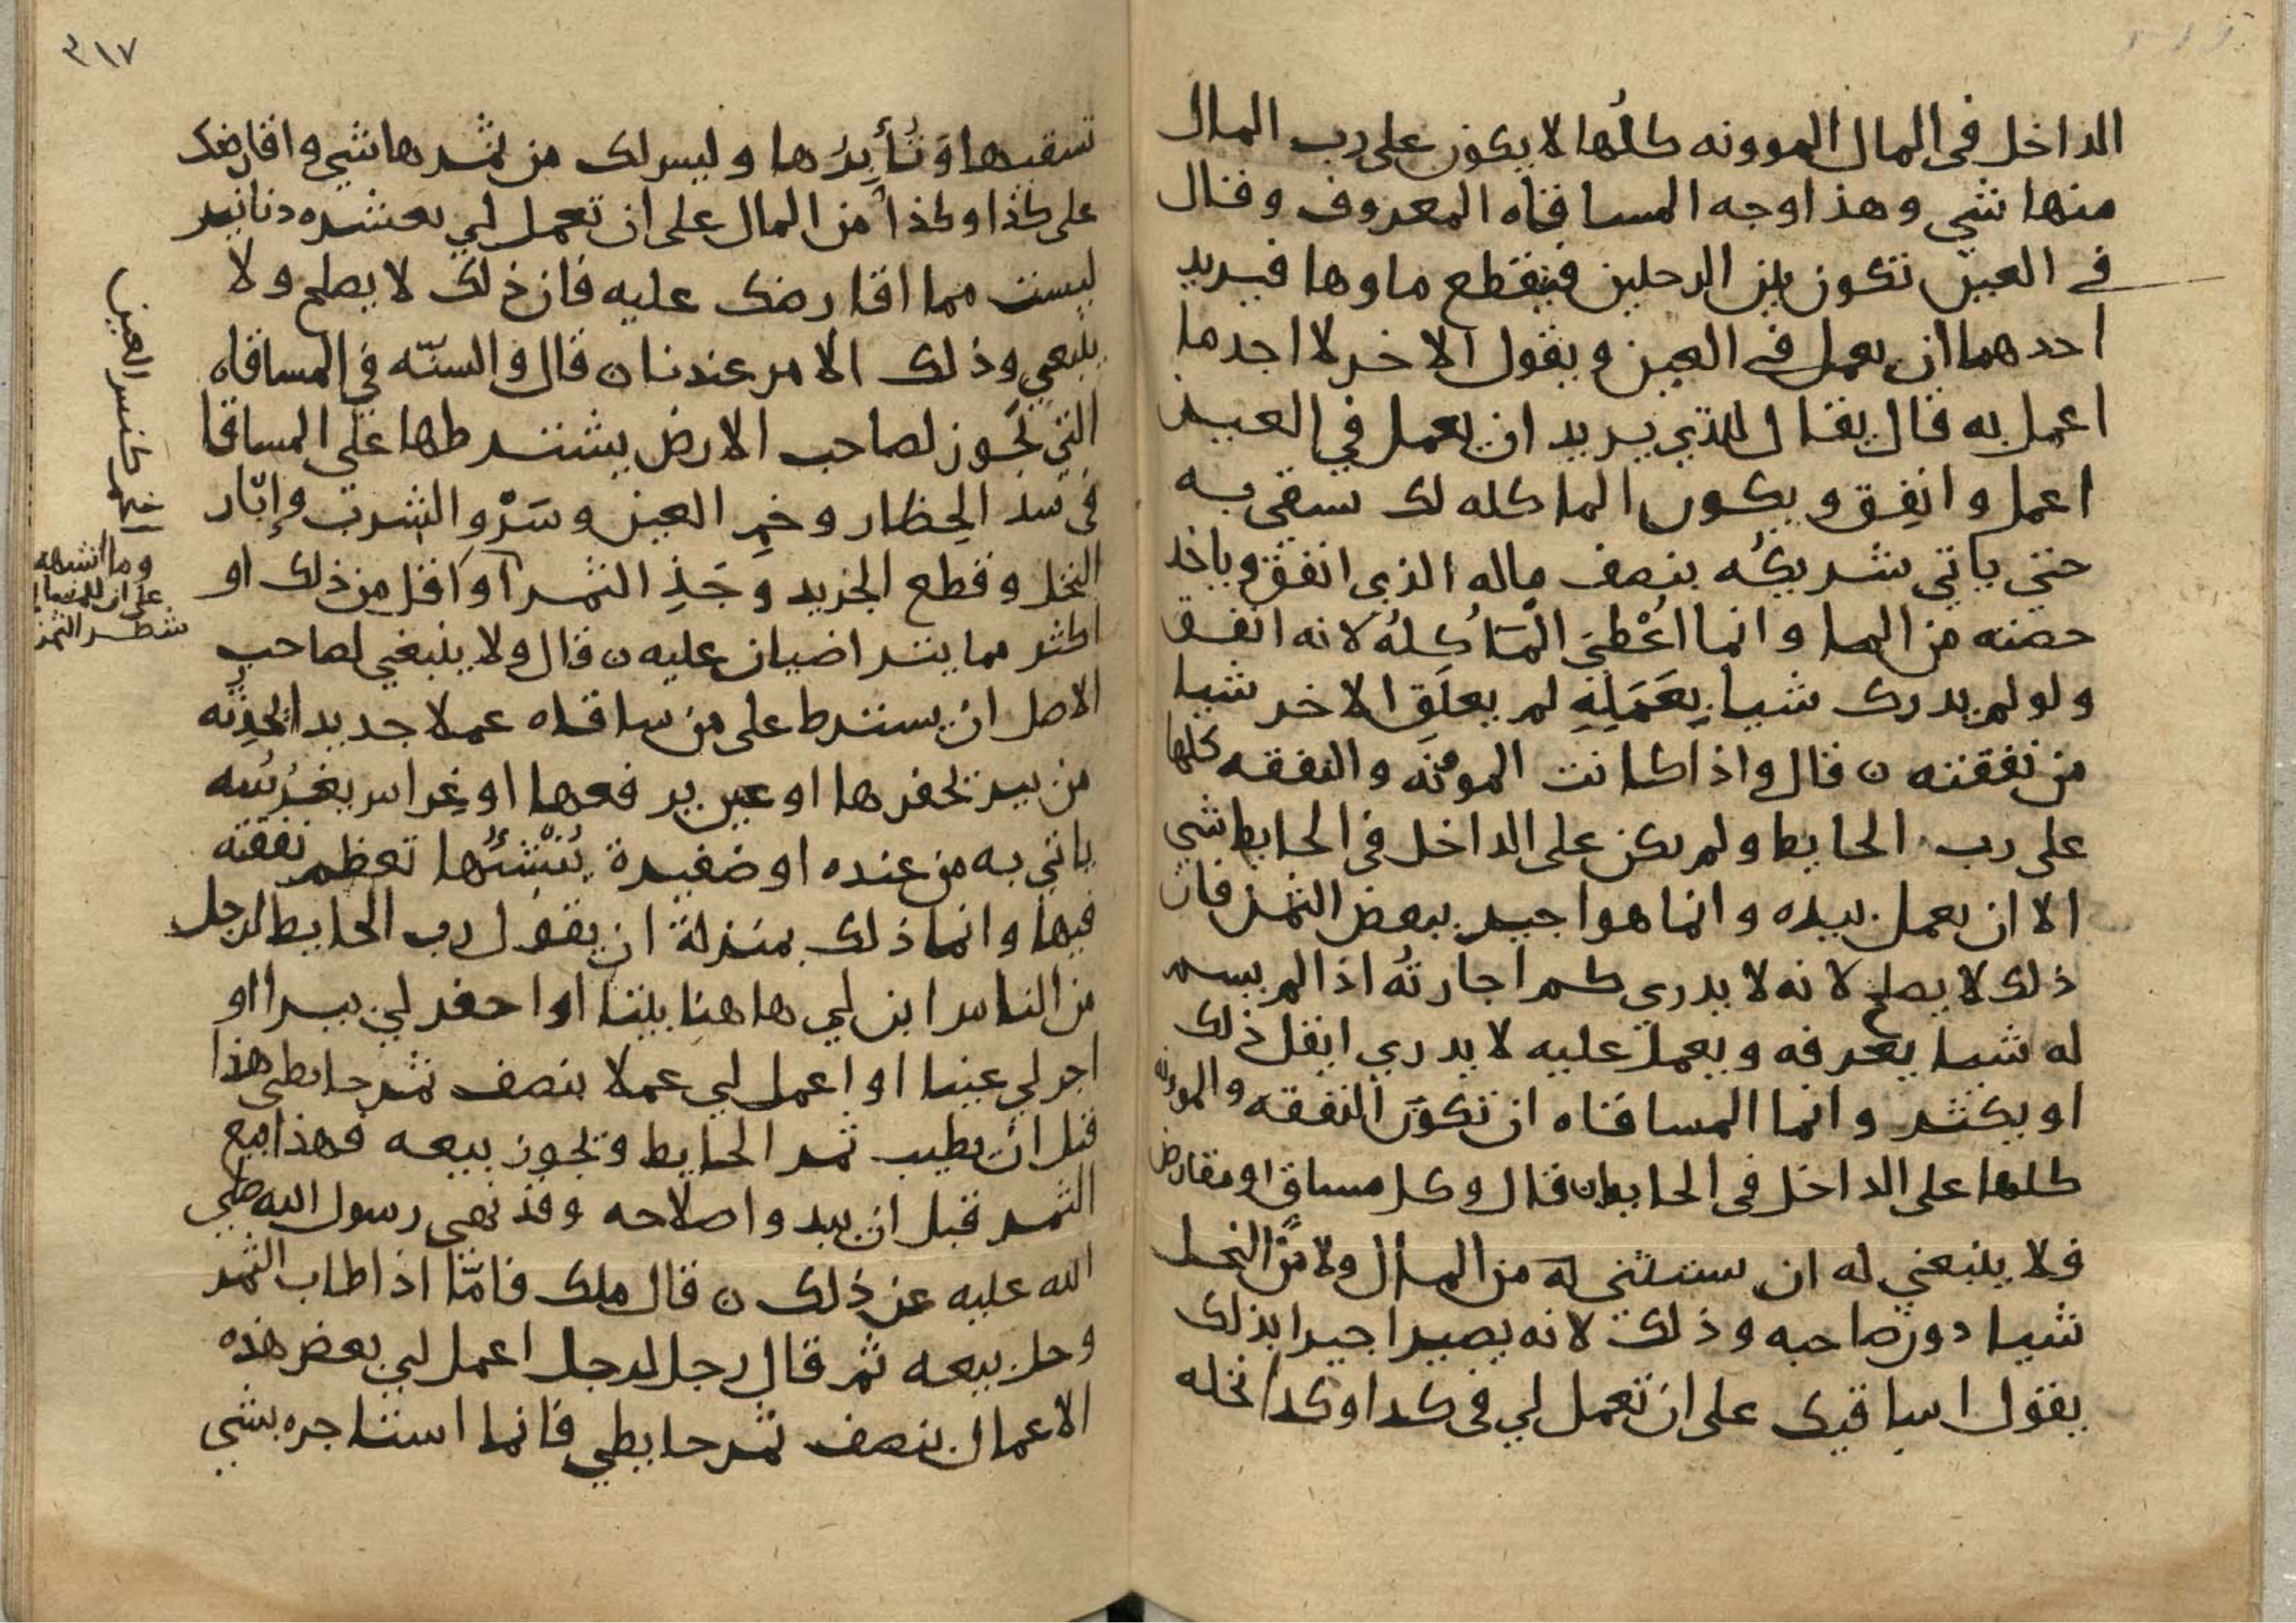 الداخل في المال الموونه كلُها لا يكون على رب المال
منها شي وهذا وجه المساقاه المعروف وقال
في العين تكون بين الرجلين فينقطع ماوها فيريد
احدهما ان يعمل في العين ويقول الاخر لا اجد ما
اعمل به قال يقال للذي يريد ان يعمل في العين
اعمل وانفِق ويكون الما كله لك تسقي به
حتى ياتي شريكُه بنصف ماله الذي انفق وياخذ
حصته من الما وانما اُعْطِيَ الْمَا كُلهُ لانه انفق
ولو لم يدرك شيا بِعَمَلِهِ لم يعلَقِ الاخر شيا
من نفقته ن قال واذا كانت المؤنه والنفقه كلها
على رب الحايط ولم يكن على الداخل في الحايط شي
الا ان يعمل بيده وانما هو اجير ببعض الثمر فان
ذلك لا يصلح لانه لا يدري كم اجارتُه اذا لم يسم
له شيا يعرفه ويعمل عليه لا يدري ايقل ذلك
او يكثر وانما المساقاه ان تكون النفقه والمونه
كلها على الداخل في الحايط ن قال وكل مساقٍ او مقارض
فلا ينبغي له ان يستثني له من المال ولا من النخل
شيا دون صاحبه وذلك لانه يصير اجيرا بذلك
يقول اساقيك على ان تعمل لي في كذا وكذا نخله
٣١٧
تسقيها وَتُأَبِرُها وليس لك من ثمرها شي واقارضك
على كذا وكذا من المال على ان تعمل لي بعشره دنانير
ليست مما اقارضك عليه فان ذلك لا يصلح ولا
ينبغي وذلك الامر عندنا ن قال والسنّه في المساقاه
التي تَجوز لصاحب الارض يشترطها على المساقا
في سد الحِظار وخمِ العين وسَرْو الشرب وإبّار
النخل وقطع الجريد وجَذِ الثمر او اقل من ذلك او
اكثر مما يتراضيان عليه ن قال ولا ينبغي لصاحب
الاصل ان يشترط على من ساقاه عملا جديدا يُحدِثه
من بير تحفرها او عين يرفعها او غِراس يغرُسه
ياتي به من عنده او ضفيرة يُنْشئُها تعظم نفقته
فيها وانما ذلك بمنزلة ان يقول رب الحايط لرجل
من الناس ابن لي هاهنا بيتا او احفر لي بيرا او
اجر لي عينا او اعمل لي عملا بنصف ثمر حايطي هذا
قبل ان يطيب ثمر الحايط ويجوز بيعه فهذا بيع
الثمر قبل ان يبدو اصلاحه وقد نهى رسول الله صلى
الله عليه عن ذلك ن قال ملك فامّا اذا طاب الثمر
وحل بيعه ثم قال رجل لرجل اعمل لي بعض هذه
الاعمال بنصف ثمر حايطي فانما استاجره بشي
كنس العين
وما اشبهه
شطر الثمر